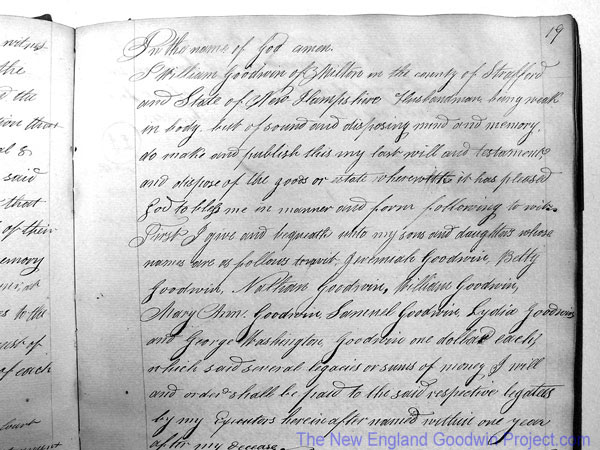 witnes
the
d the
al &
said
that
of their
emory
s to the
ust of
of each
Court
19
In the name of God amen.
I William Goodwin of Milton in the county of Strafford
and State of New Hampshire Husbandman being weak
in body but of sound and disposing mind and memory,
do make and publish this my last will and testament,
and dispose of the goods or estate wherewith it has pleased
God to bless me in manner and form following to wit.
First I give and bequeath unto my sons and daughters whose
names are as follows to wit Jeremiah Goodwin, Betty
Goodwin, Nathan Goodwin, William Goodwin,
Mary Ann. Goodwin, Samuel Goodwin, Lydia Goodwin,
and George Washington Goodwin one dollar each
which said several legacies or sums of money I will
and order shall be paid to the said respective legatees
by my Executors herein after named within one year
after my decease.
The New England Goodwin Project.com